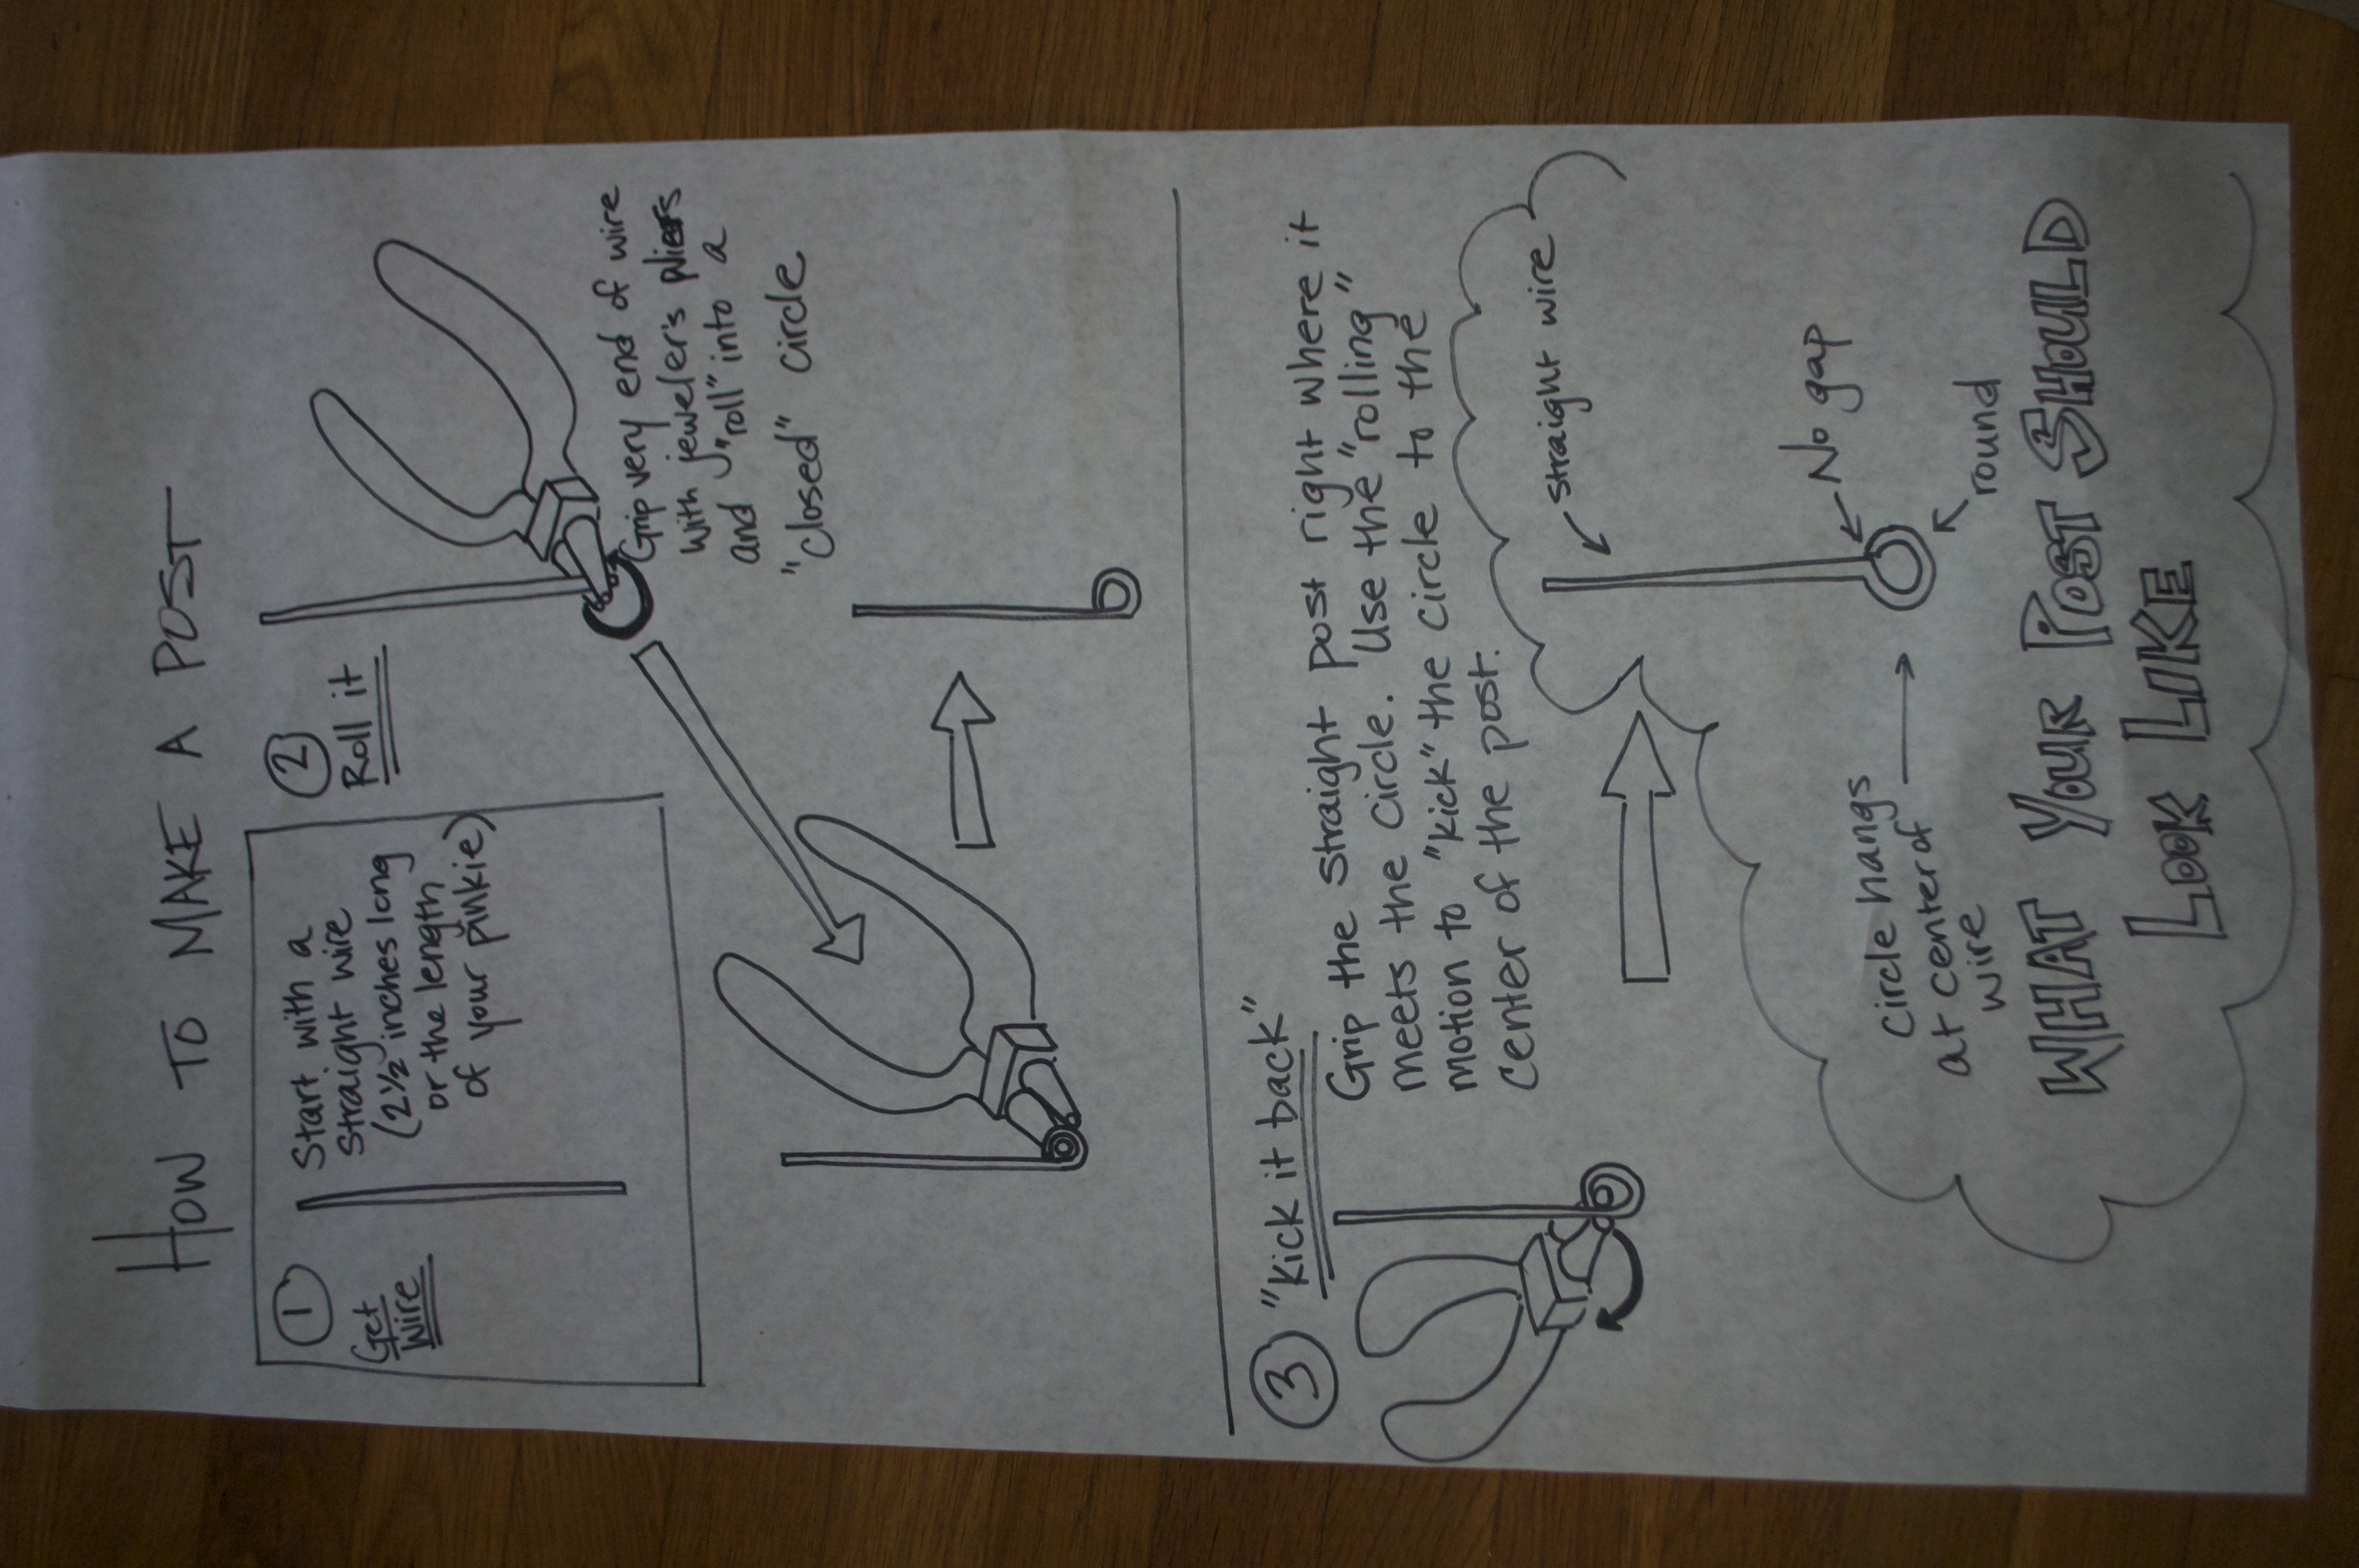 HOW TO MAKE A POST
1
Get
Wire
Start with a
straight wire
(2½ inches long
or the length
of your pinkie)
2
Roll it
Grip very end of wire
with jeweler's pliers
and "roll" into a
"closed" circle
3
"Kick it back"
Grip the straight post right where it
meets the circle. Use the "rolling"
motion to "kick" the circle to the
center of the post.
straight wire
No gap
round
circle hangs
at center of
wire
WHAT YOUR POST SHOULD
LOOK LIKE